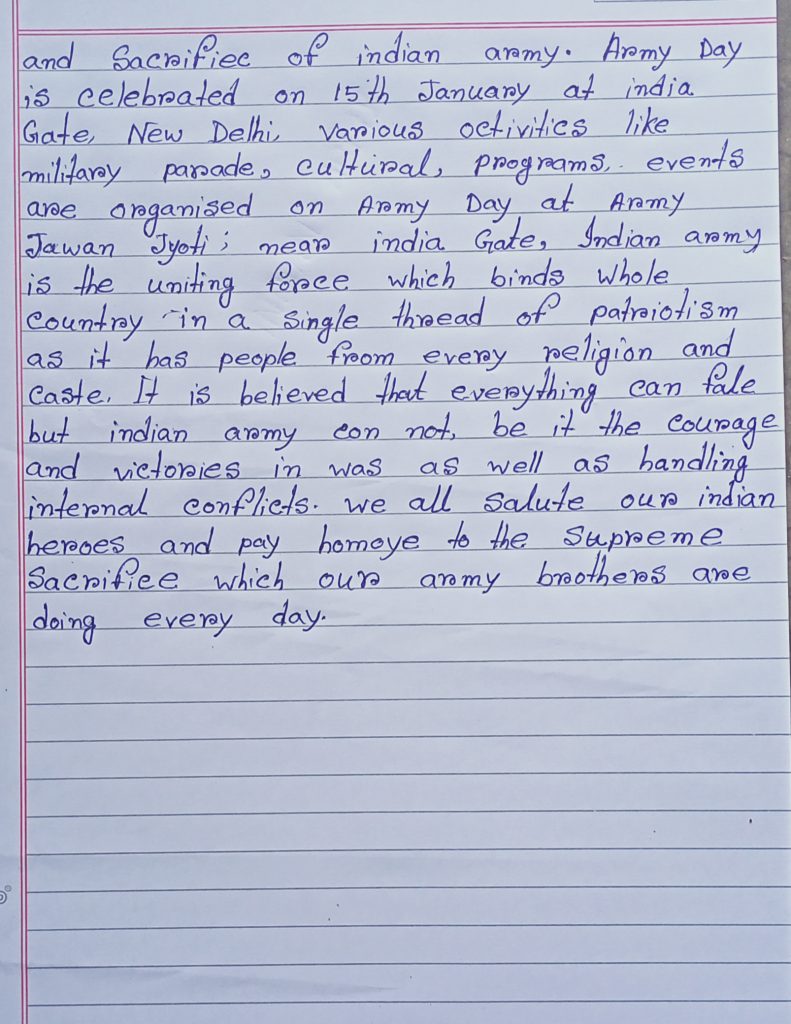 and Sacrifice of indian army. Army Day
is celebrated on 15th January at india
Gate, New Delhi, various octivities like
military parade, cultural, programs, events
are organised on Army Day at Army
Jawan Jyoti; near india Gate, Indian army
is the uniting force which binds whole
country in a single thread of patriotism
as it has people from every religion and
caste. It is believed that everything can fale
but indian army con not, be it the courage
and victories in was as well as handling
internal conflicts. we all salute our indian
heroes and pay homoye to the supreme
Sacrifice which our army brothers are
doing every day.